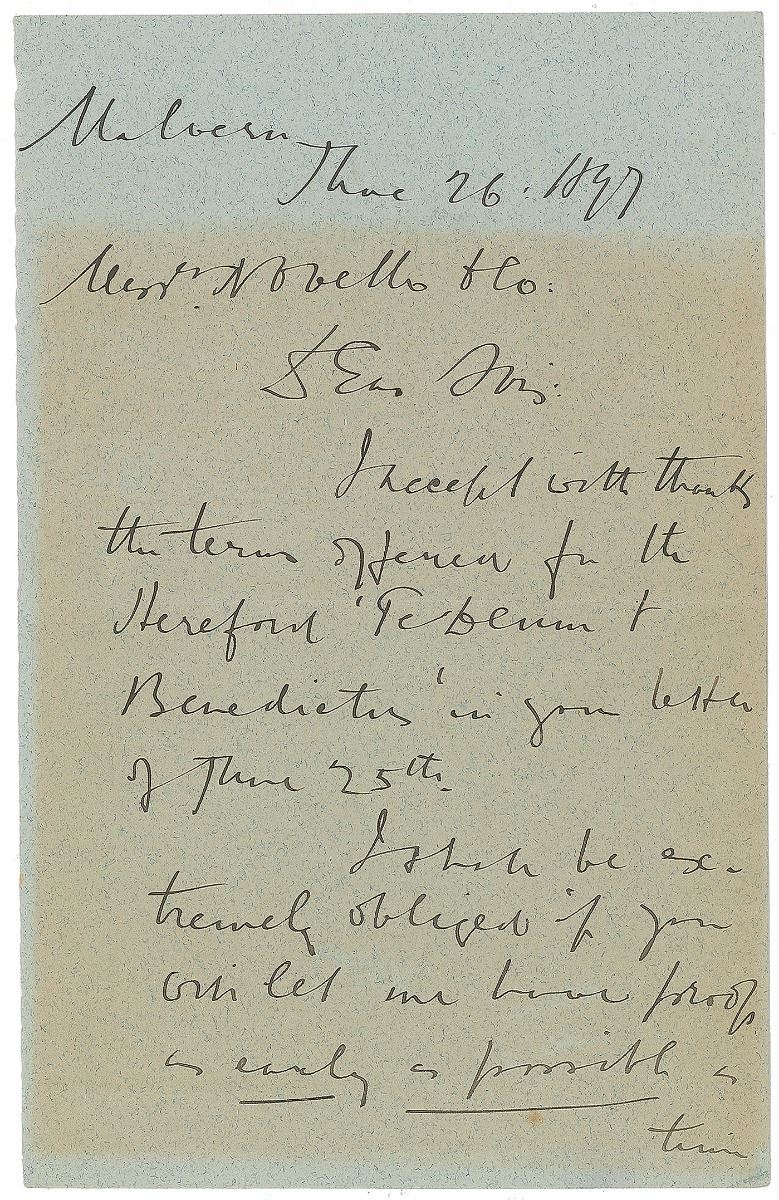 Malvern
June 26. 1897
Messrs. Novello & Co:
Dear Sirs:
I accept with thanks
the terms offered for the
Hereford 'Te Deum &
Benedictus' in your letter
of June 25th.
I shall be ex-
tremely obliged if you
will let me have proofs
as early as possible as
time